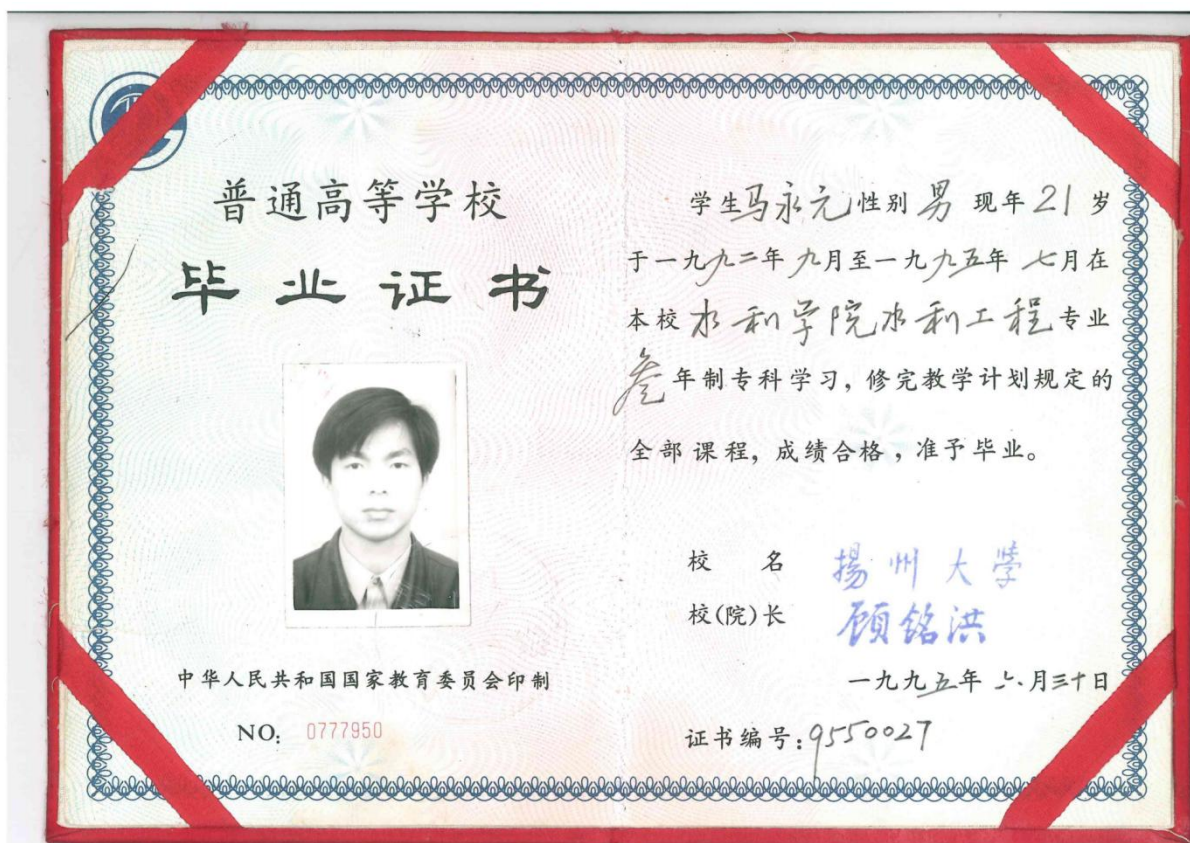 普通高等学校
毕业证书
中华人民共和国国家教育委员会印制
NO: 0777950
学生马永元性别男现年21岁
于一九九二年九月至一九九五年七月在
本校水利学院水利工程专业
叁年制专科学习，修完教学计划规定的
全部课程，成绩合格，准予毕业。
校名 揚州大學
校(院)长 顾铭洪
一九九五年六月三十日
证书编号：9550027